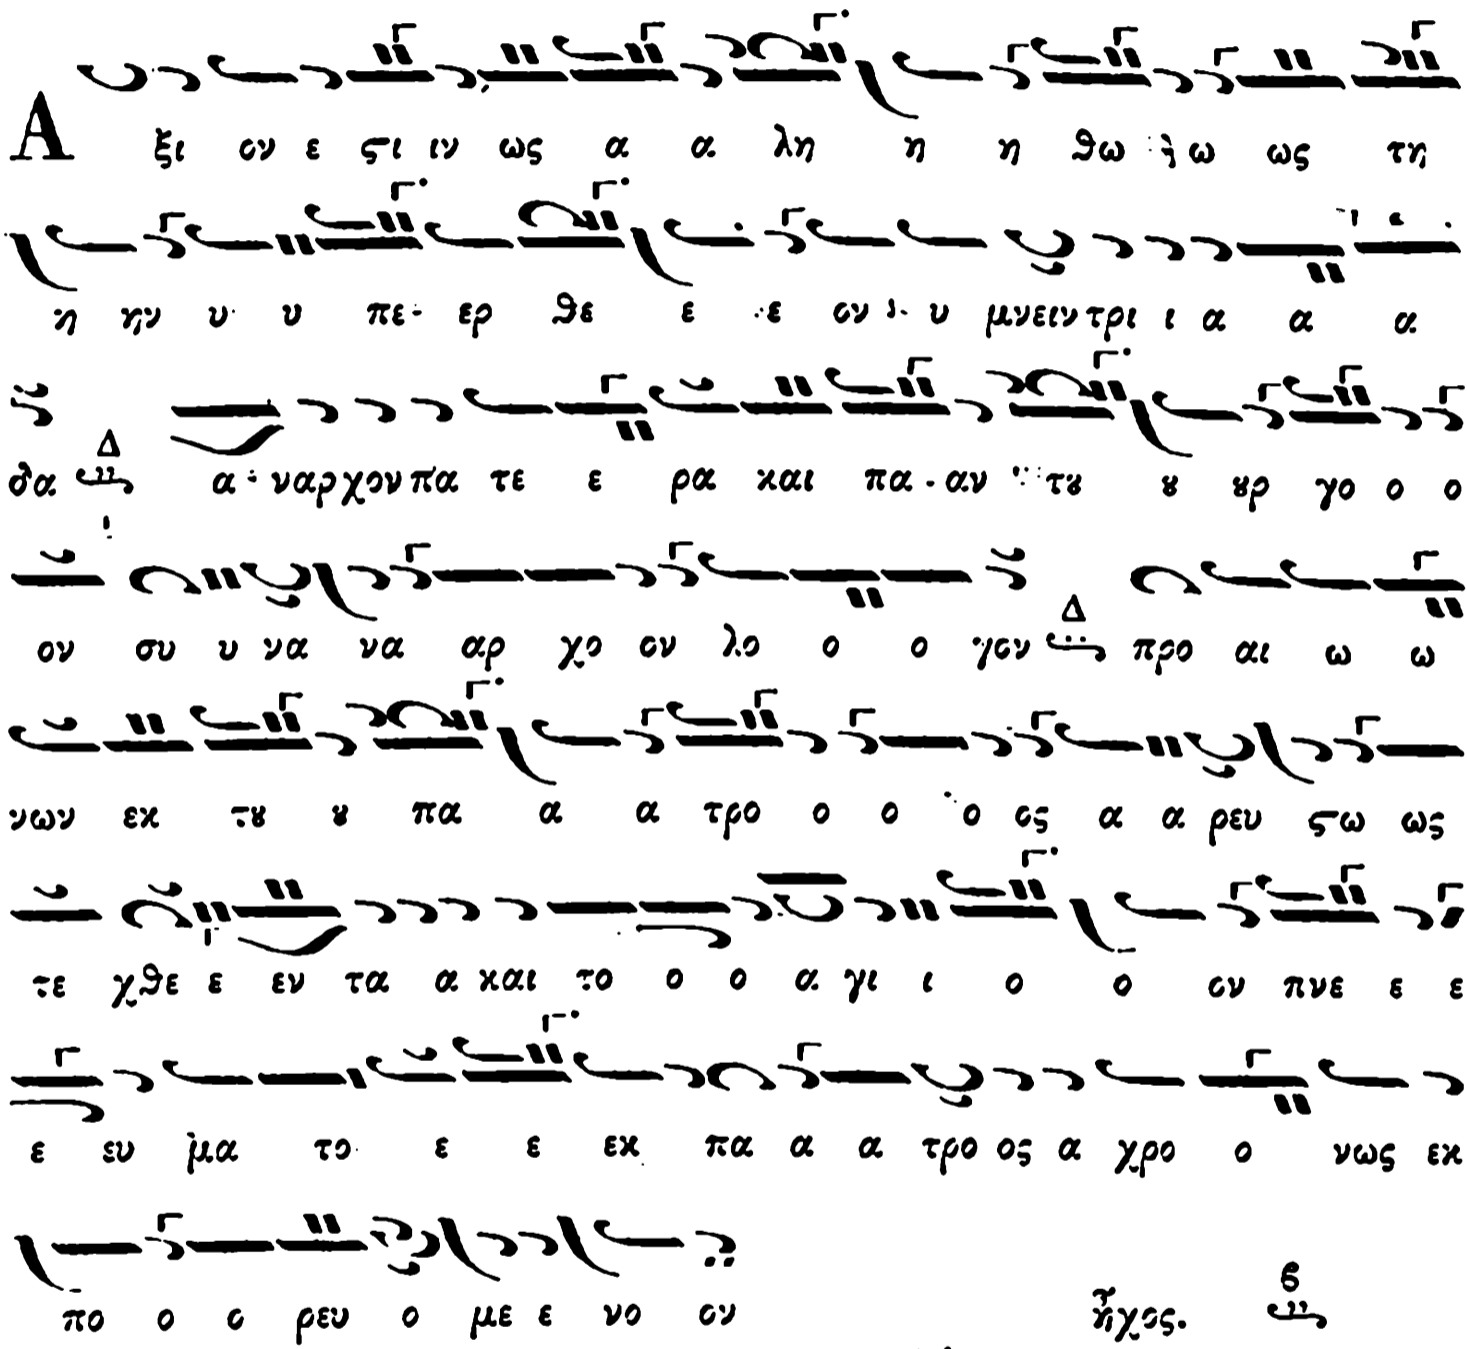 Α ξι ον ε ϛι ιν ως α α λη η η θω ω ως τη
η ην υ υ πε ερ θε ε ε ον υ μνειν τρι ι α α α
δα Δ α ναρ χον πα τε ε ρα και πα αν τȣ ȣ ȣρ γο ο ο
ον συ υ να να αρ χο ον λο ο ο γον Δ προ αι ω ω
νων εκ τȣ ȣ πα α α τρο ο ο ο ος α α ρευ ϛω ως
τε χθε ε εν τα α και το ο ο α γι ι ο ο ον πνε ε ε
ε ευ μα το ε ε εκ πα α α τρο ος α χρο ο νως εκ
πο ο ο ρευ ο με ε νο ον ἦχος.